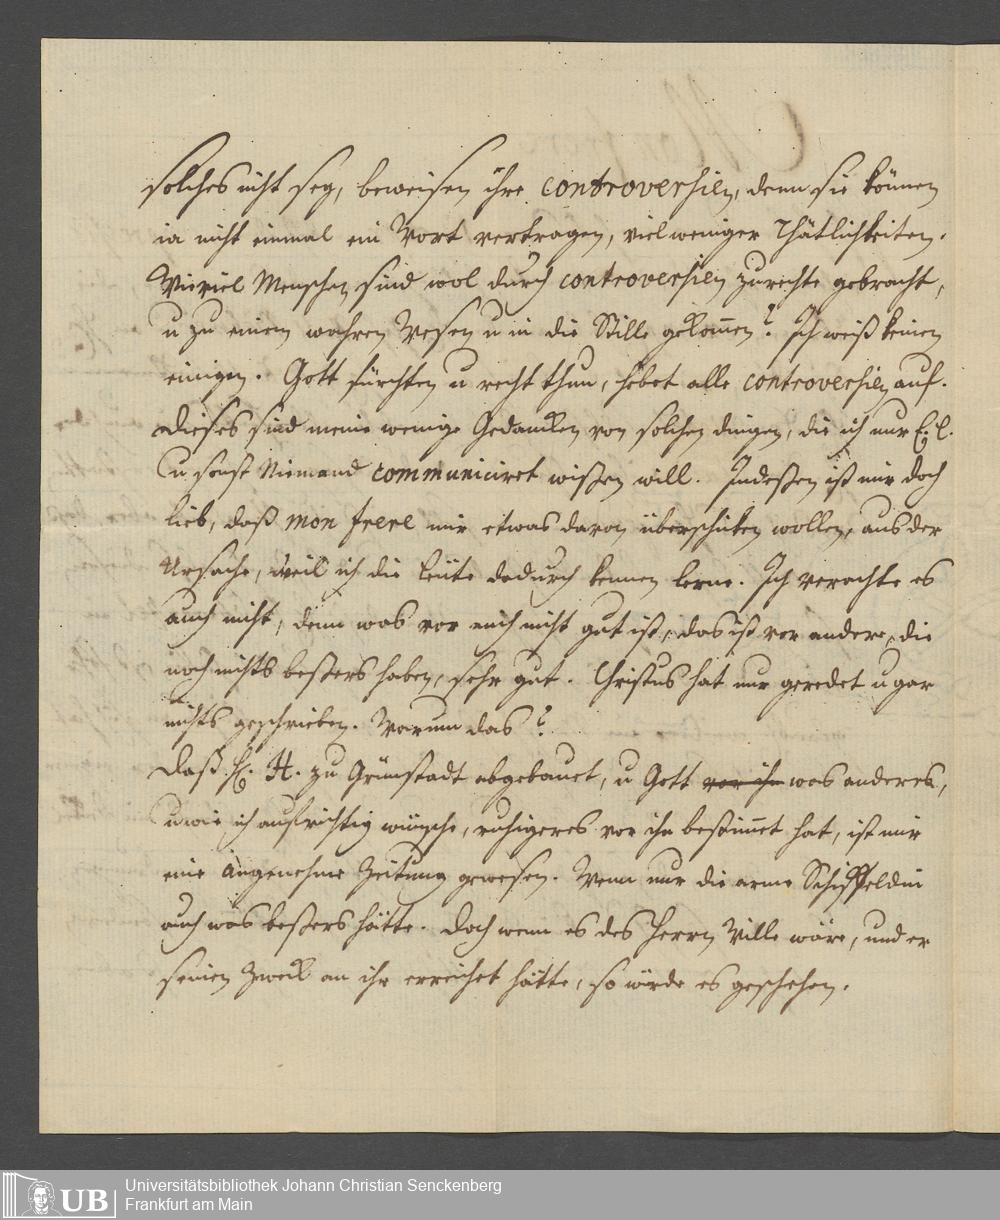 solches nicht seÿ, beweisen ihre controversien, denn sie können
ia nicht einmal ein Wort vertragen, viel weniger Thätlichkeiten.
Wieviel Menschen sind wol durch controversien zurechte gebracht,
u zu einem wahren Wesen u in die Stille gekommen? Ich weiß keinen
einigen. Gott fürchten u recht thun, hebet alle controversien auf.
Dieses sind meine wenige Gedancken von solchen dingen, die ich nur E. l.
u sonst Niemand communiciret wißen will. Indeßen ist mir doch
lieb, daß mon frere mir etwas davon überschicken wollen, aus der
Ursache, weil ich die Leüte dadurch kennen lerne. Ich verachte es
auch nicht, denn was vor mich nicht gut ist, das ist vor andere, die
noch nichts beßers haben, sehr gut. Christus hat nur geredet u gar
nichts geschrieben. Warum das?
Daß H. H. zu Grünstadt abgebauet, u Gott vor ihn was anderes,
u wie ich aufrichtig wünsche, ruhigeres vor ihn bestimmet hat, ist mir
eine angenehme Zeitung gewesen. Wenn nur die arme Schiffeldin
auch was beßers hätte. Doch wenn es des Herrn Wille wäre, und er
seinen Zweck an ihr erreichet hätte, so würde es geschehen.
UB
Universitätsbibliothek Johann Christian Senckenberg
Frankfurt am Main